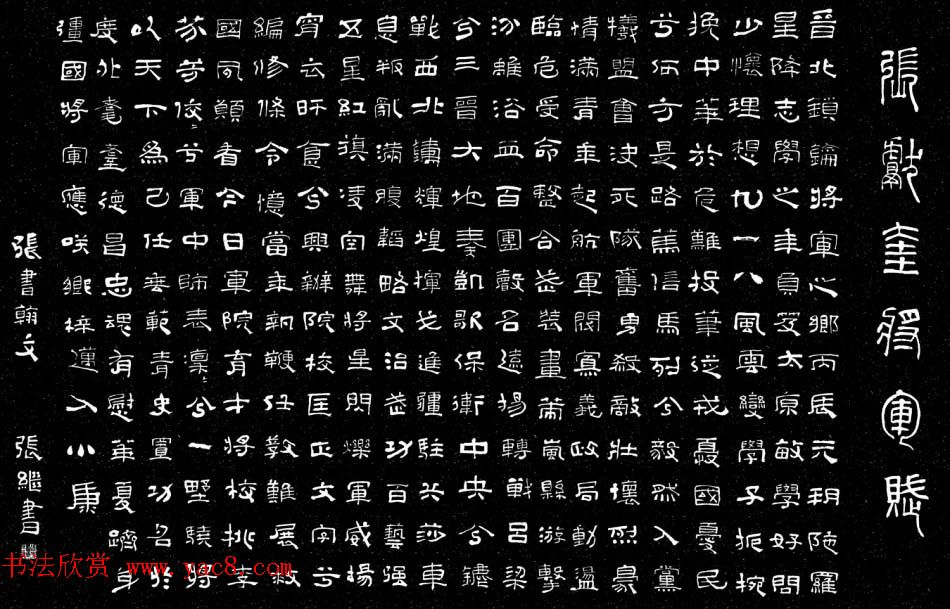 張獻奎將軍賦
晉北鎖鑰將軍心鄉丙辰元朔陀羅
星降志學之年負笈太原敏學好問
少懷理想九一八風雲變學子扼腕
挽中華於危難投筆從戎憂國憂民
兮何方是路篤信馬列兮毅然入黨
犧盟會決死隊奮勇殺敵壯懷烈豪
情滿青年起航軍閥寫義政局動盪
臨危受命整合武裝畫策嵐縣游擊
汾離浴血百團聲名遠揚轉戰呂梁
兮三晉大地奏凱歌保衛中央兮鏖
戰西北鑄輝煌揮戈進疆駐兵莎車
息叛亂滿腹韜略文治武功百藝強
五星紅旗凌空舞將星閃爍軍威揚
宵衣旰食兮興辦院校匡正文字兮
編修條令憶當年執鞭任教難展救
國夙願看今日軍院育才將校桃李
芬芳佼兮軍中師表凜兮一野驍將
以天下為己任垂範青史置功名於
度外耄耋德昌忠魂有慰華夏躋身
彊國將軍應咲鄉梓邁入小康
張書翰文 張繼書
书法欣赏 www.yac8.com